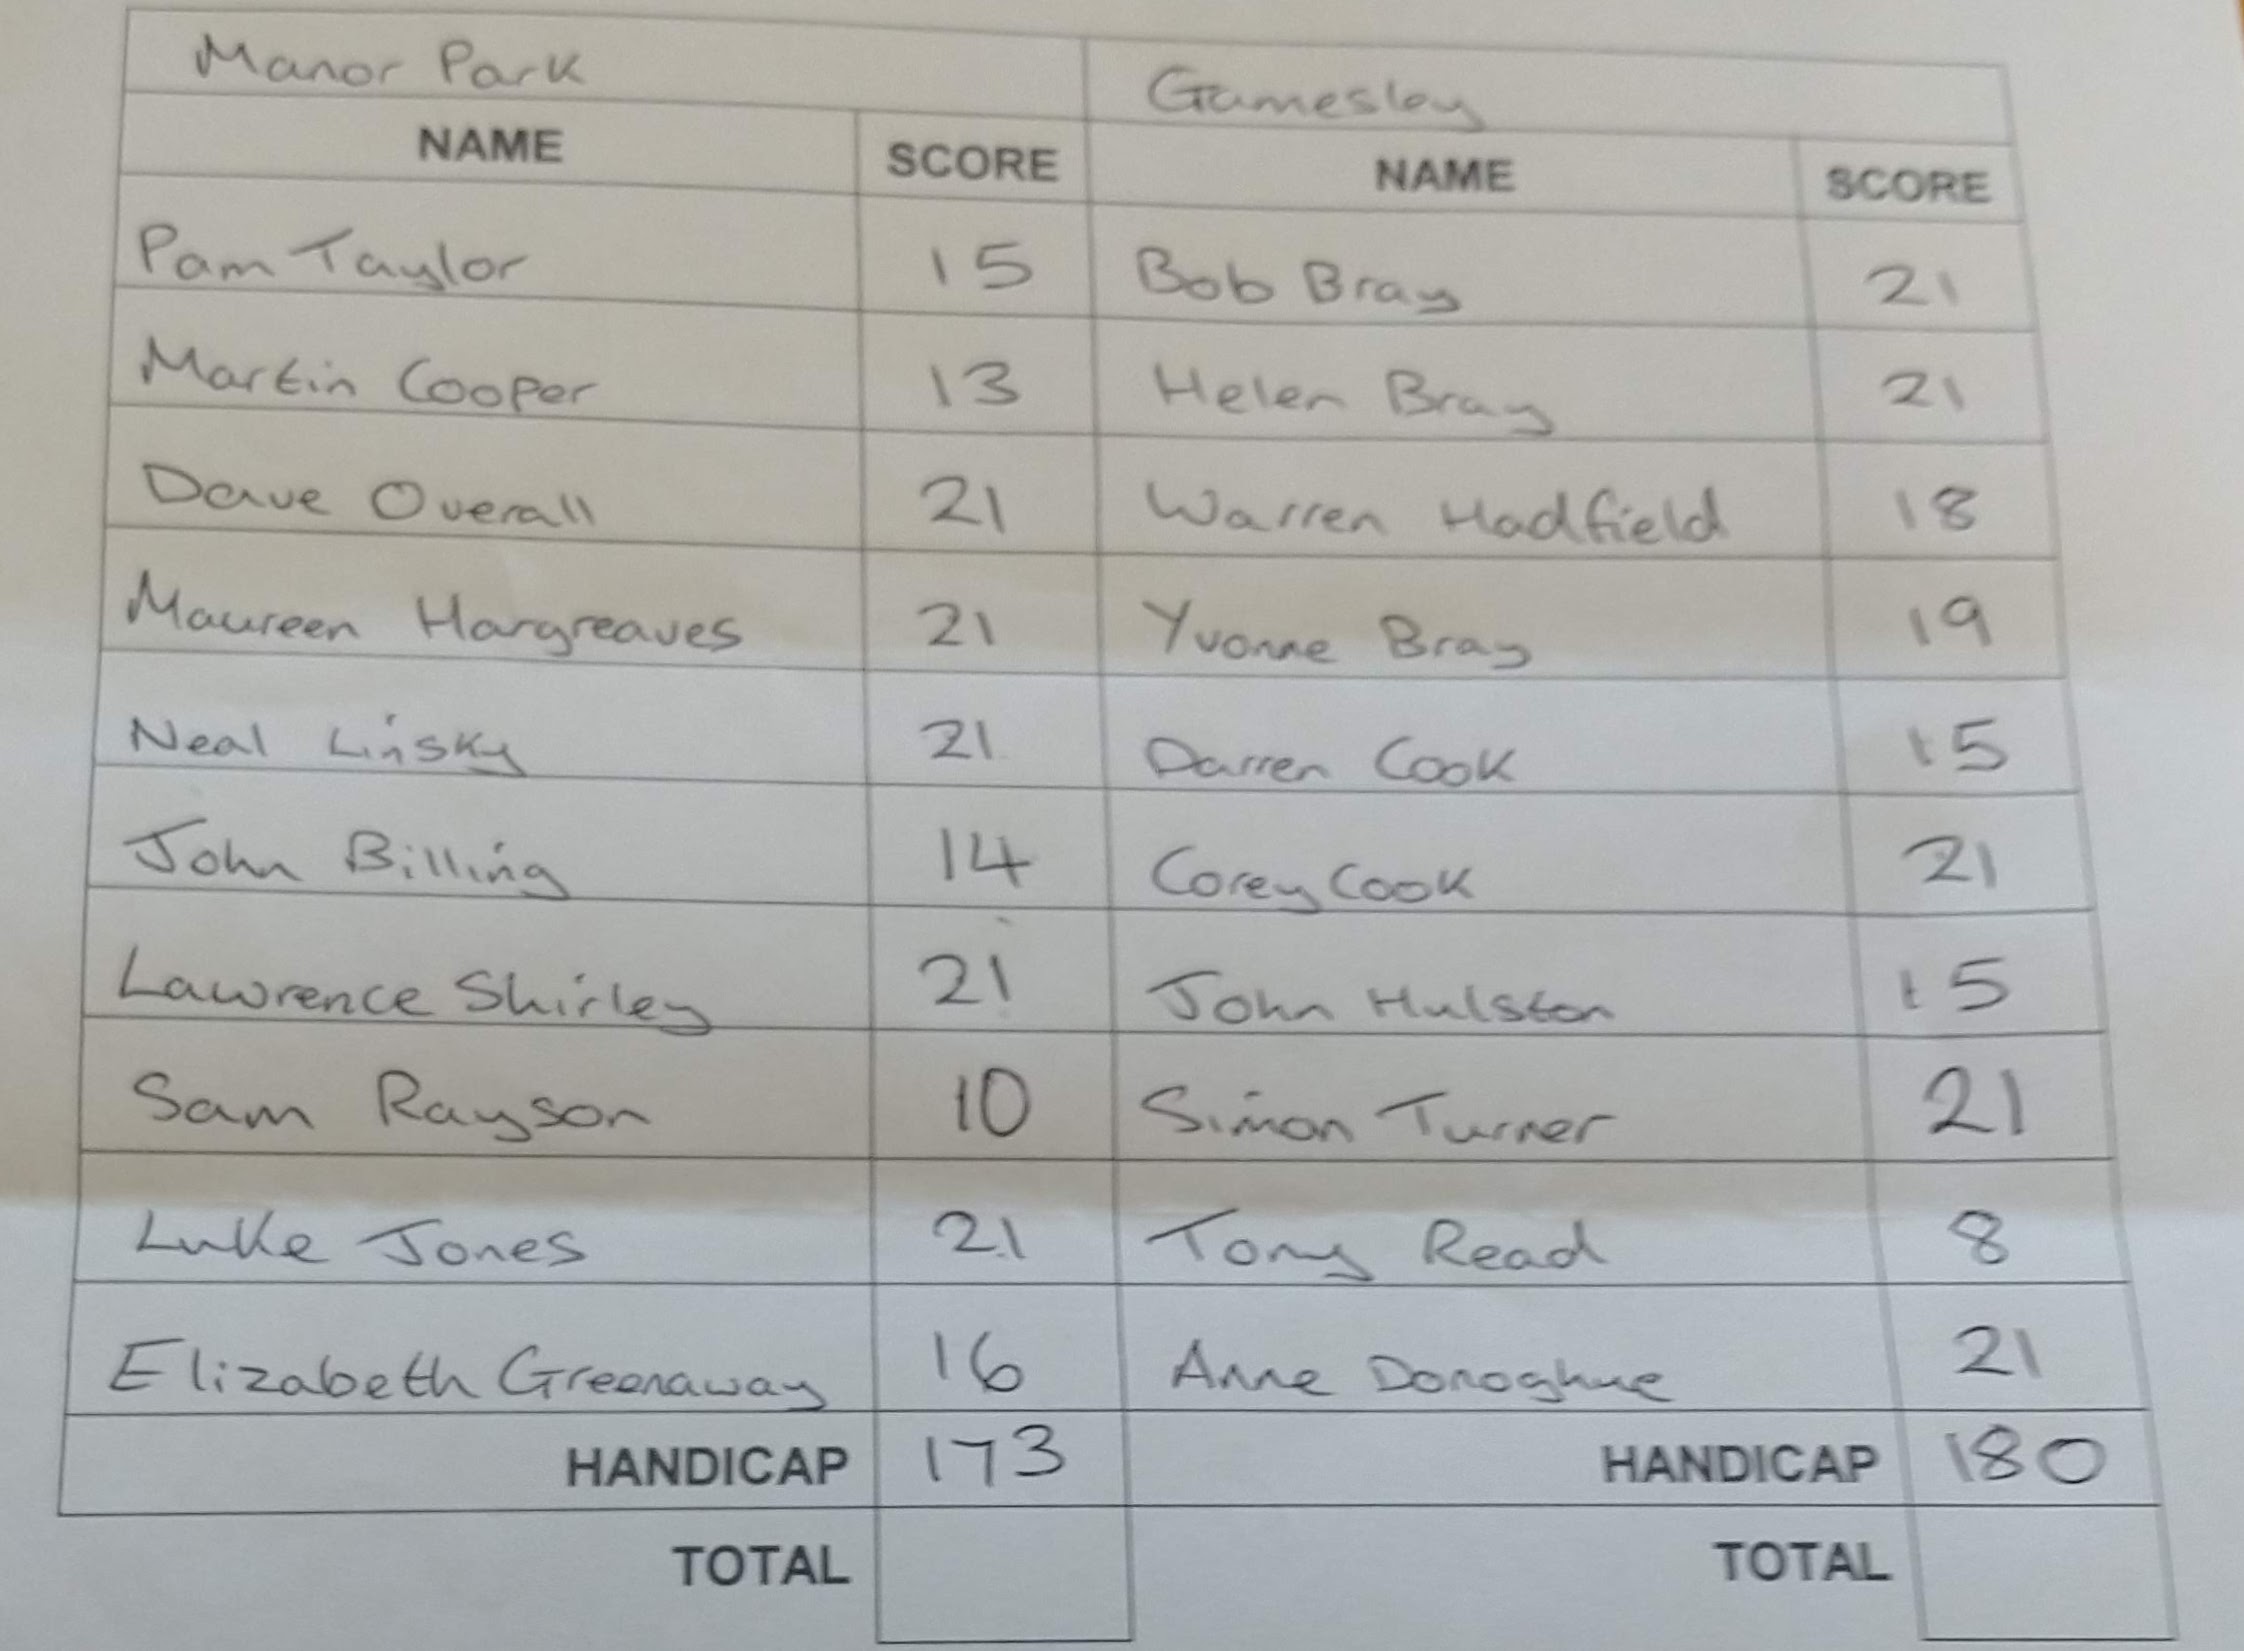 Manor Park Gamesley
NAME SCORE NAME SCORE
Pam Taylor 15 Bob Bray 21
Martin Cooper 13 Helen Bray 21
Dave Overall 21 Warren Hadfield 18
Maureen Hargreaves 21 Yvonne Bray 19
Neal Linsky 21 Darren Cook 15
John Billing 14 Corey Cook 21
Lawrence Shirley 21 John Hulston 15
Sam Rayson 10 Simon Turner 21
Luke Jones 21 Tony Read 8
Elizabeth Greenaway 16 Anne Donoghue 21
HANDICAP 173 HANDICAP 180
TOTAL TOTAL